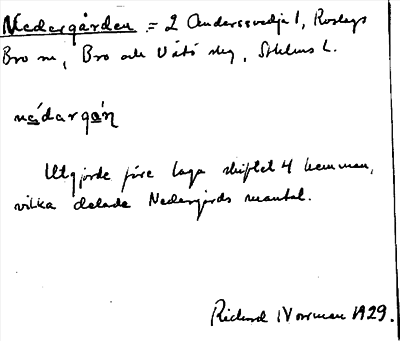 Nedergården = 2 Anderssvedja 1, Roslags
Bro sn, Bro och Vätö skg, Sthlms L.
nédargón
Utgjorde före laga skiftet 4 hemman,
vilka delade Nedergårds mantal.
Richard Norrman 1929.